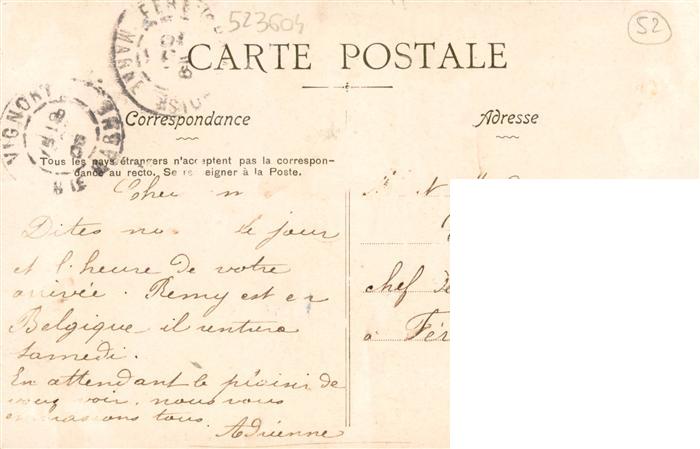 523604
52
CARTE POSTALE
Correspondance
Adresse
Tous les pays étrangers n'acceptent pas la correspon-
dance au recto. Se renseigner à la Poste.
VIGNORY
HTE MARNE
MARNE
Cher
Dites le jour
et l'heure de votre
arrivée. Remy est en
Belgique il rentrera
samedi.
En attendant le plaisir de
vous voir, nous vous
embrassons tous.
Adrienne
chef de
à Fér